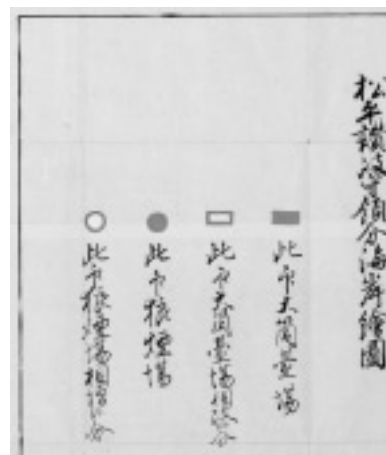 松平讃岐守領分海岸繪圖
此印大筒臺場
此印大筒臺場相止分
此印狼煙場
此印狼煙場相止分